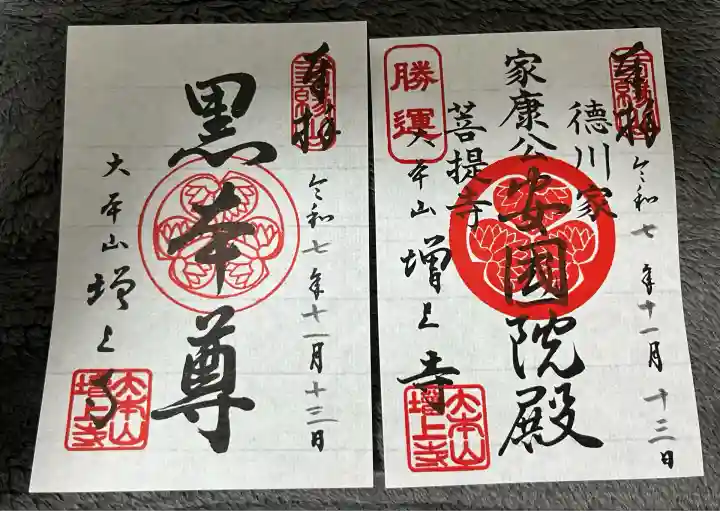 奉拝
令和七年十一月十三日
黒本尊
大本山増上寺
大本山
増上寺
奉拝
令和七年十一月十三日
徳川家
家康公安國院殿
菩提寺
勝運
大本山増上寺
大本山
増上寺